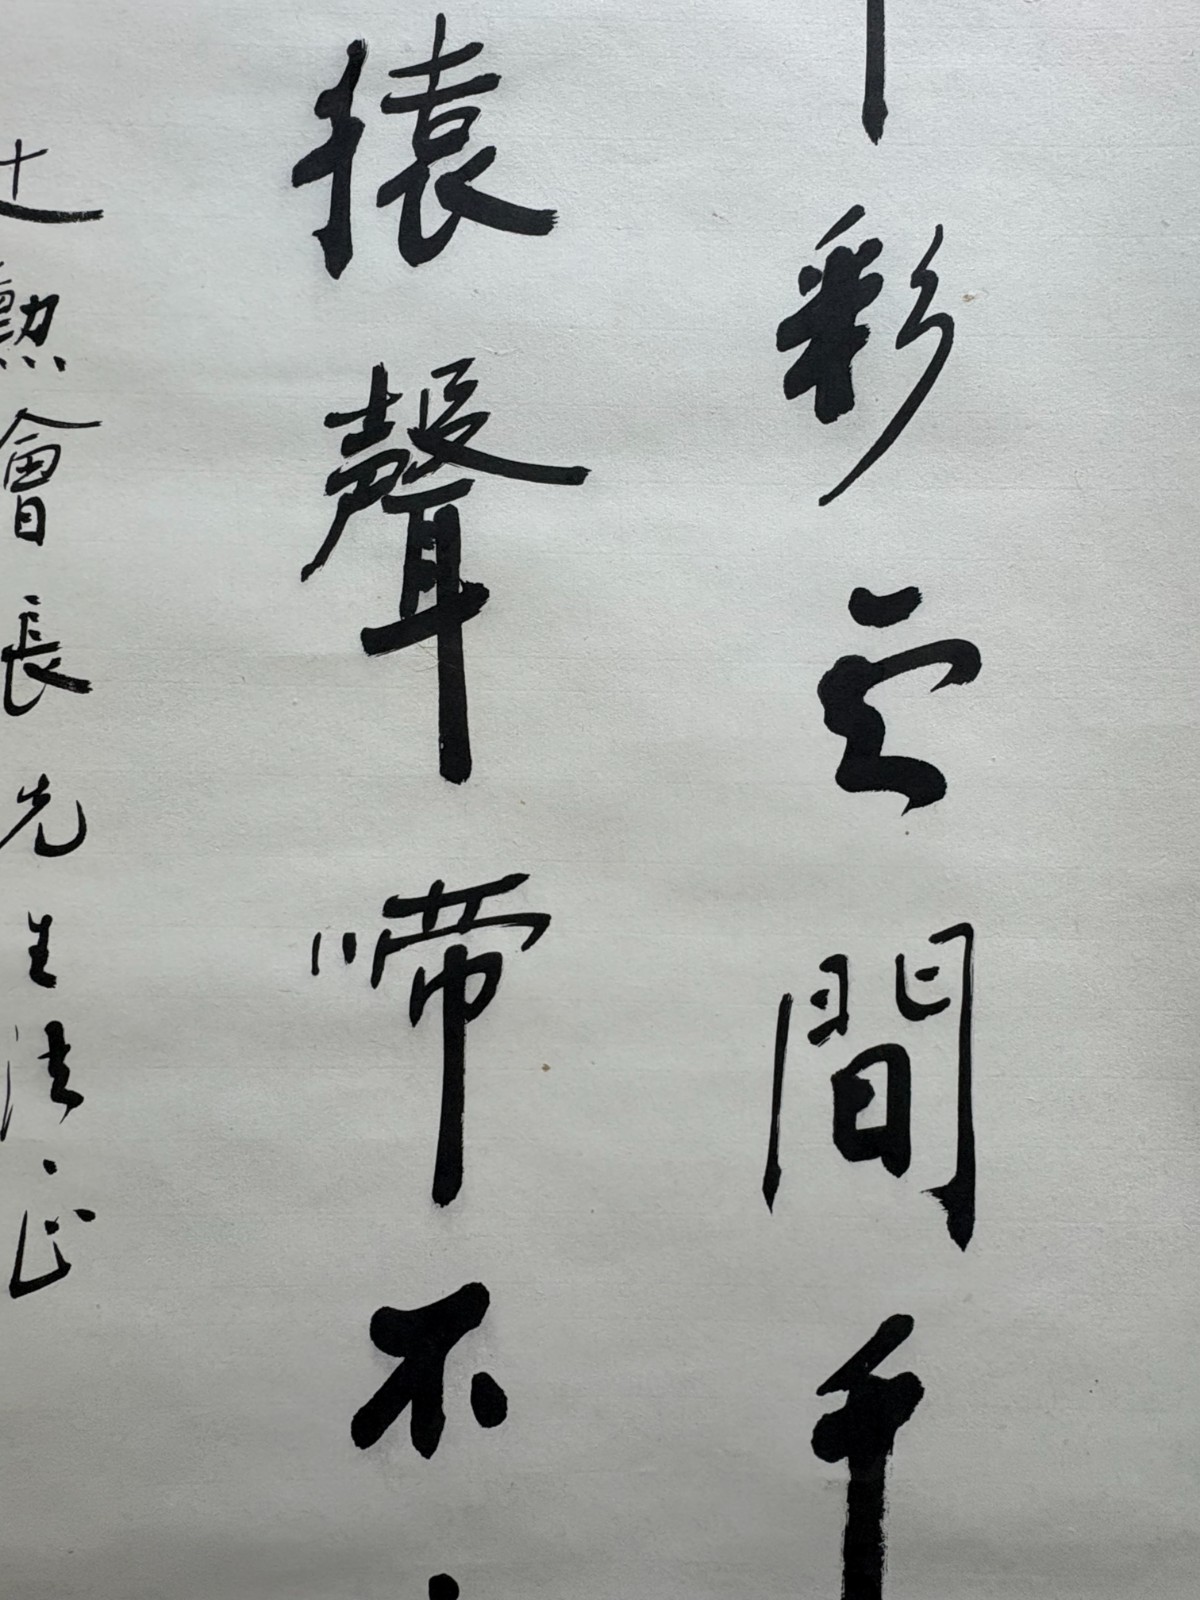 彩雲間千
猿聲啼不
勲會長先生法正